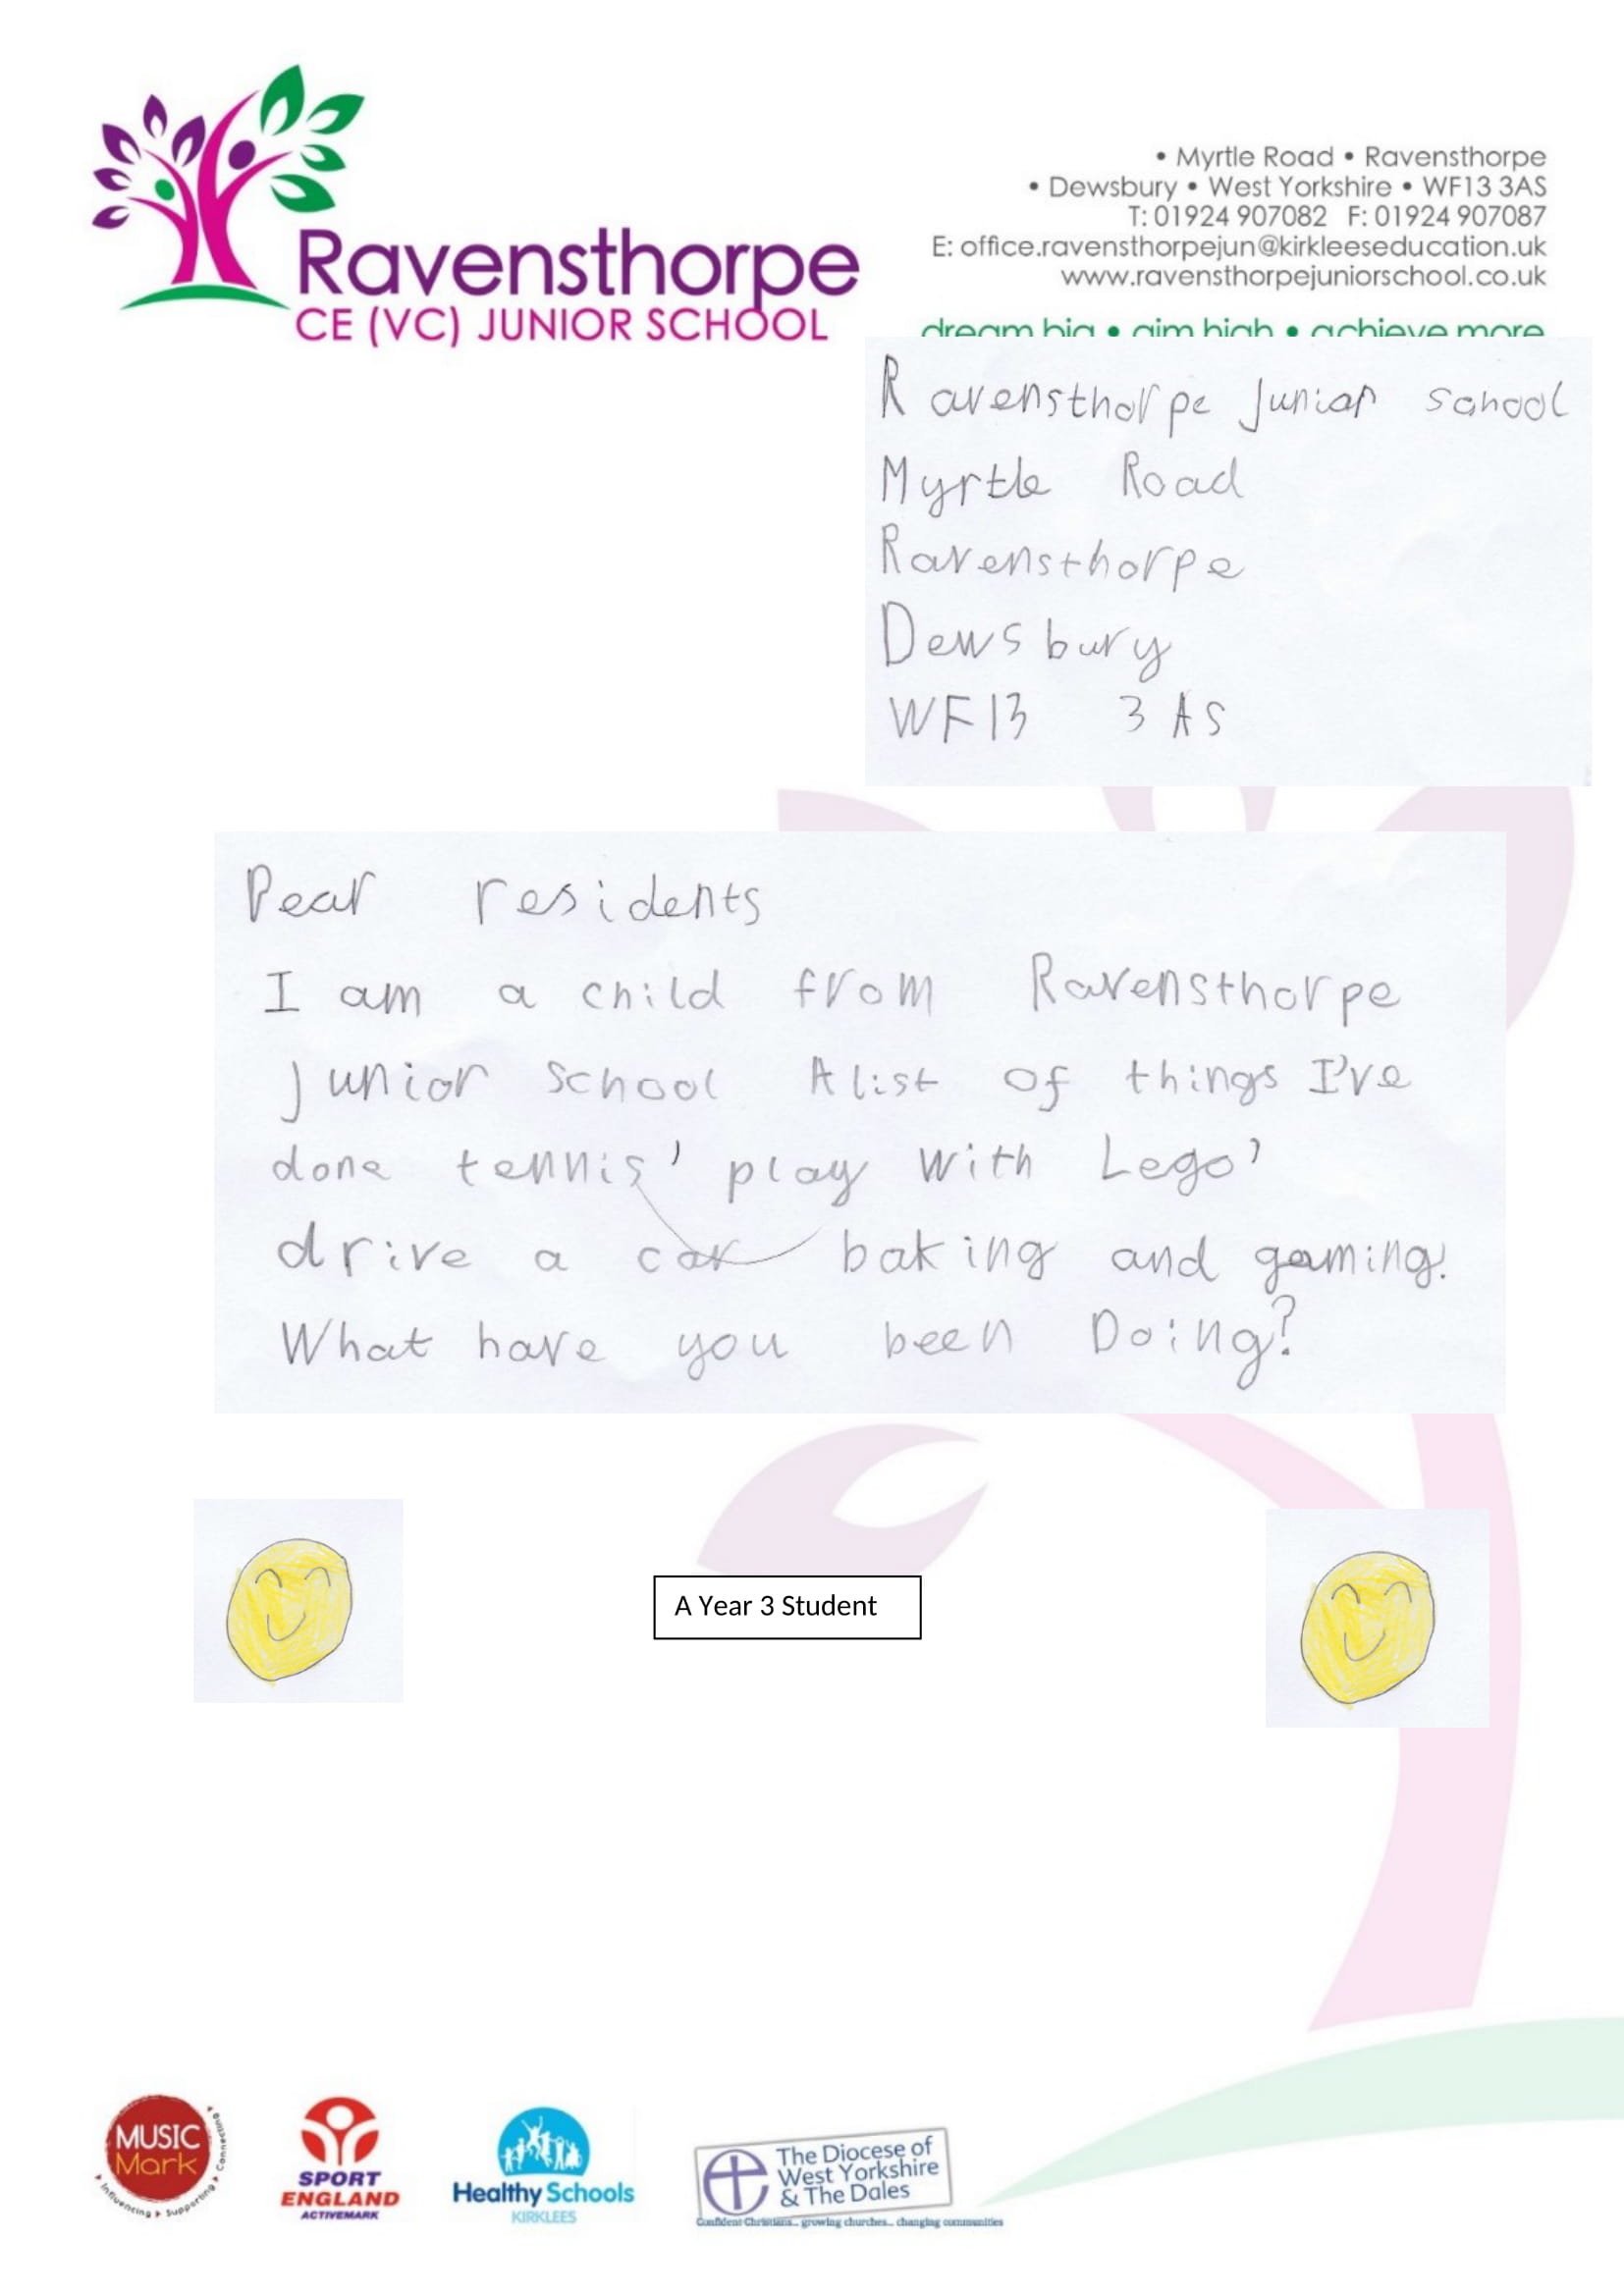 Ravensthorpe
CE (VC) JUNIOR SCHOOL
• Myrtle Road • Ravensthorpe
• Dewsbury • West Yorkshire • WF13 3AS
T: 01924 907082 F: 01924 907087
E: office.ravensthorpejun@kirkleeseducation.uk
www.ravensthorpejuniorschool.co.uk
dream big • aim high • achieve more
Ravensthorpe Junior school
Myrtle Road
Ravensthorpe
Dewsbury
WF13 3AS
Dear residents
I am a child from Ravensthorpe
Junior school A list of things I've
done tennis' play with Lego'
drive a car baking and gaming.
What have you been Doing?
A Year 3 Student
MUSIC
Mark
Influencing Supporting Connecting
SPORT
ENGLAND
ACTIVEMARK
Healthy Schools
KIRKLEES
The Diocese of
West Yorkshire
& The Dales
Confident Christians... growing churches... changing communities